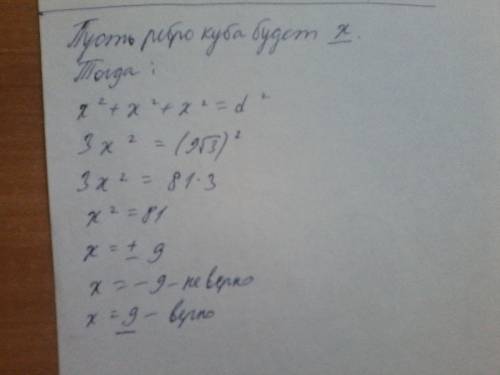 Пусть ребро куба будет x.
Тогда:
x² + x² + x² = d²
3x² = (9√3)²
3x² = 81·3
x² = 81
x = ± 9
x = -9 - не верно
x = 9 - верно